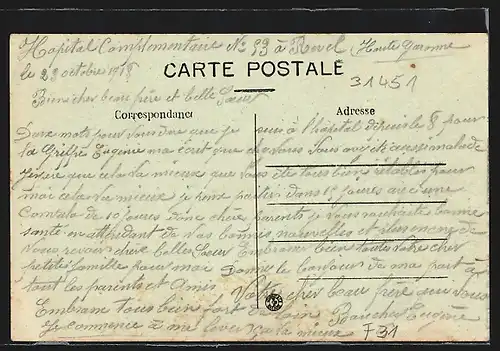 Hopital Complementaire No 93 à Revel Haute Garonne
le 23 octobre 1918
CARTE POSTALE
31451
Bien cher beau frère et belle Sœur
Correspondance
Adresse
Deux mots pour vous dire que je suis à l'hopital depuis le 8 pour
la Grippe Eugenie ma écrit que vous avez été aussi malade
J'espère que cela va mieux que vous êtes tous bien rétablis pour
moi cela va mieux je pense partir dans 15 jours avec une
Convalo de 10 jours chers parents je vous souhaite bonne
santé attendant de vos bonnes nouvelles et
vous revoir chere belle Sœur Embrassez bien toute votre cher
petite famille pour moi Donne le bonjour de ma part à
tout les parents et Amis Votre cher beau frère qui vous
Embrasse tous bien fort de loin Eugène
Je commence à me lever sa va mieux
F31